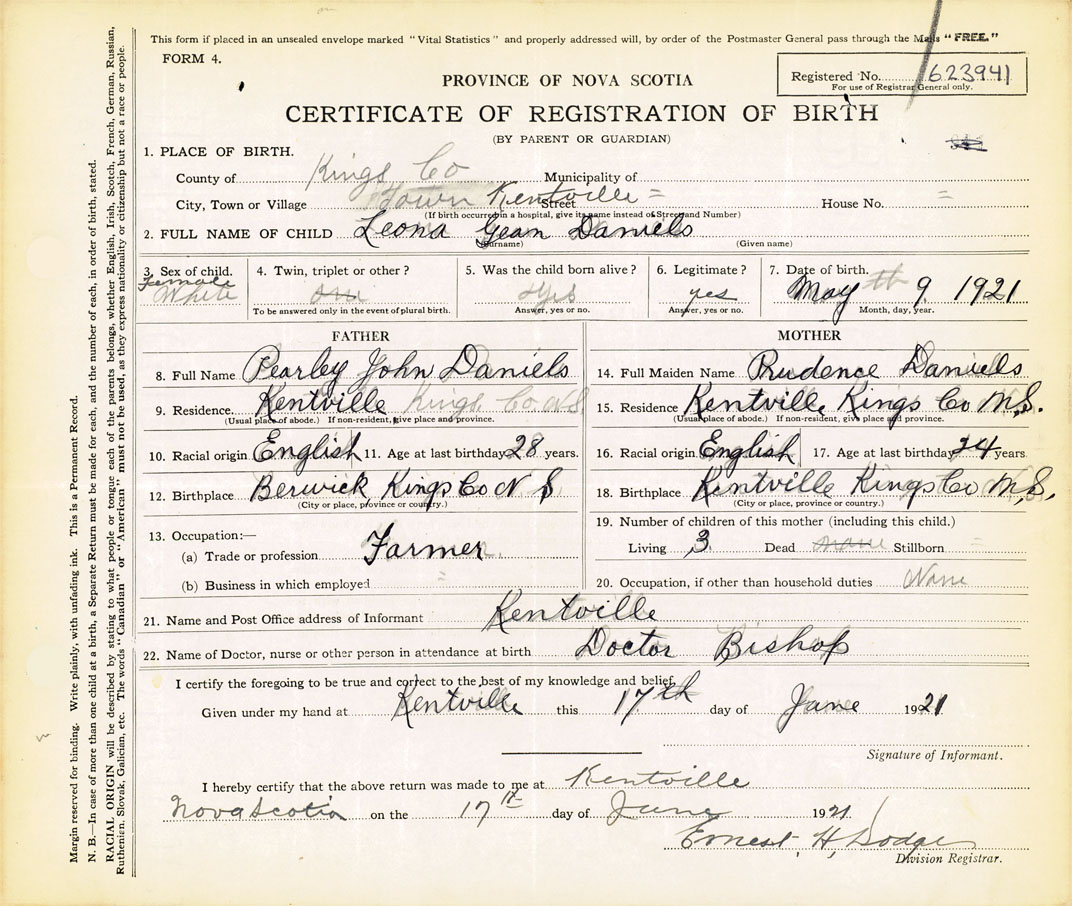 This form if placed in an unsealed envelope marked "Vital Statistics" and properly addressed will, by order of the Postmaster General pass through the Mails "FREE."
FORM 4.
PROVINCE OF NOVA SCOTIA
Registered No. 623941
For use of Registrar General only.
CERTIFICATE OF REGISTRATION OF BIRTH
(BY PARENT OR GUARDIAN)
1. PLACE OF BIRTH.
County of Kings Co Municipality of
City, Town or Village Town Kentville Street = House No. =
(If birth occurred in a hospital, give its name instead of Street and Number)
2. FULL NAME OF CHILD Leona Gean Daniels
(Surname) (Given name)
3. Sex of child. 4. Twin, triplet or other? 5. Was the child born alive? 6. Legitimate? 7. Date of birth.
Female
White Yes yes May th 9 1921
To be answered only in the event of plural birth. Answer, yes or no. Answer, yes or no. Month, day, year.
FATHER
8. Full Name Pearley John Daniels
9. Residence. Kentville Kings Co N.S
(Usual place of abode.) If non-resident, give place and province.
10. Racial origin English 11. Age at last birthday 28 years.
12. Birthplace Berwick, Kings Co N S
(City or place, province or country.)
13. Occupation:—
(a) Trade or profession Farmer
(b) Business in which employed =
MOTHER
14. Full Maiden Name Prudence Daniels
15. Residence Kentville, Kings Co N.S.
(Usual place of abode.) If non-resident, give place and province.
16. Racial origin English 17. Age at last birthday 24 years.
18. Birthplace Kentville Kings Co N.S.
(City or place, province or country.)
19. Number of children of this mother (including this child.)
Living 3 Dead none Stillborn =
20. Occupation, if other than household duties None
21. Name and Post Office address of Informant Kentville
22. Name of Doctor, nurse or other person in attendance at birth Doctor Bishop
I certify the foregoing to be true and correct to the best of my knowledge and belief.
Given under my hand at Kentville this 17th day of June 1921
Signature of Informant.
I hereby certify that the above return was made to me at Kentville
Nova Scotia on the 17th day of June 1921
Ernest H. Dodge
Division Registrar.
Margin reserved for binding. Write plainly, with unfading ink. This is a Permanent Record.
N. B.—In case of more than one child at a birth, a Separate Return must be made for each, and the number of each, in order of birth, stated.
RACIAL ORIGIN will be described by stating to what people or tongue each of the parents belongs, whether English, Irish, Scotch, French, German, Russian,
Ruthenian, Slovak, Galician, etc. The words "Canadian" or "American" must not be used, as they express nationality or citizenship but not a race or people.